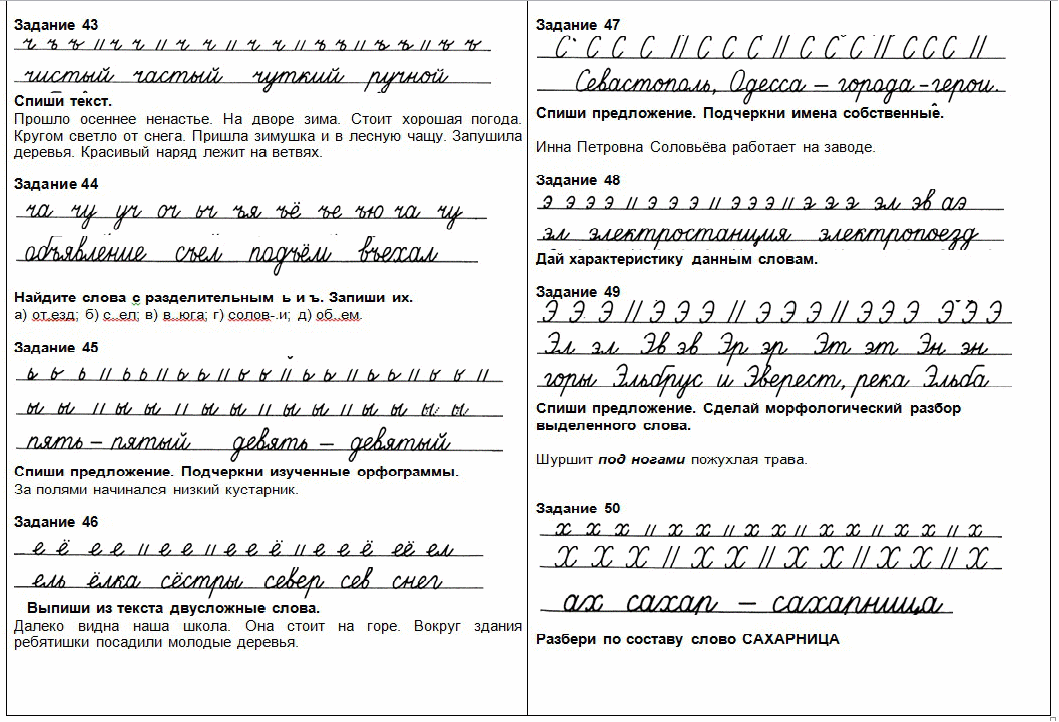 Задание 43
ч ъ ъ // ч ч // ч ч // ч ч // ъ ъ // ъ ъ // ъ ъ
чистый частый чуткий ручной
Спиши текст.
Прошло осеннее ненастье. На дворе зима. Стоит хорошая погода.
Кругом светло от снега. Пришла зимушка и в лесную чащу. Запушила
деревья. Красивый наряд лежит на ветвях.
Задание 44
ча чу уч оч ыч ъя ъё ъе ъю ча чу
объявление съел подъём въехал
Найдите слова с разделительным ь и ъ. Запиши их.
а) от.езд; б) с..ел; в) в..юга; г) солов-.и; д) об..ем.
Задание 45
ь ь ь // ь ь // ь ь // ь ь // ь ь // ь ь // ь ь //
ы ы // ы ы // ы ы // ы ы // ы ы ы ы
пять – пятый девять – девятый
Спиши предложение. Подчеркни изученные орфограммы.
За полями начинался низкий кустарник.
Задание 46
е ё е е // е е // е е ё // е е ё её ел
ель ёлка сёстры север сев снег
Выпиши из текста двусложные слова.
Далеко видна наша школа. Она стоит на горе. Вокруг здания
ребятишки посадили молодые деревья.
Задание 47
С С С С // С С С // С С С // С С С //
Севастополь, Одесса – города-герои.
Спиши предложение. Подчеркни имена собственные.
Инна Петровна Соловьёва работает на заводе.
Задание 48
э э э э // э э э // э э э // э э э эл эв аэ
эл электростанция электропоезд
Дай характеристику данным словам.
Задание 49
Э Э Э // Э Э Э // Э Э Э // Э Э Э Э Э Э
Эл эл Эв эв Эр эр Эт эт Эн эн
горы Эльбрус и Эверест, река Эльба
Спиши предложение. Сделай морфологический разбор
выделенного слова.
Шуршит под ногами пожухлая трава.
Задание 50
х х х // х х // х х // х х // х х // х
Х Х Х // Х Х // Х Х // Х Х // Х
ах сахар – сахарница
Разбери по составу слово САХАРНИЦА